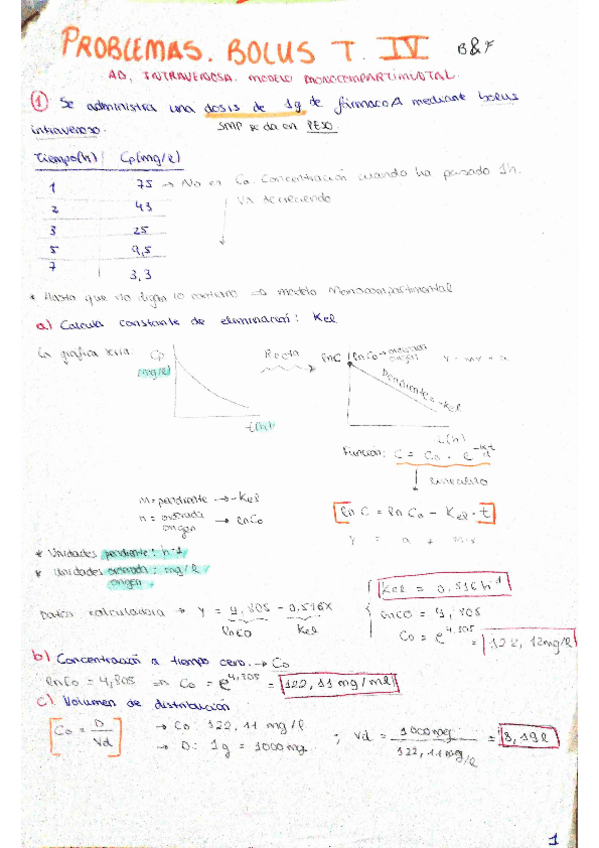 PROBLEMAS. BOLUS T. IV B&F
AD. INTRAVENOSA. MODELO MONOCOMPARTIMENTAL.
① Se administra una dosis de 1g de fármaco A mediante bolus
intravenoso. SMP se da en PESO.
Tiempo(h) Cp(mg/l)
1 75 → No es Co. Concentración cuando ha pasado 1h.
2 43 Va decreciendo
3 25
5 9,5
7 3,3
* Hasta que no digan lo contrario → modelo Monocompartimental
a) Calcula constante de eliminación: Kel
La gráfica sería: Cp (mg/l) t(h) Recta lnC lnCo → ordenada origen
Pendiente = -Kel
t(h)
Función: C = Co · e^-Kt
linealizo
m = pendiente → -Kel
n = ordenada origen → lnCo
[ln C = ln Co - Kel · t]
* Unidades pendiente: h-1
* Unidades ordenada: mg/l
origen
Kel = 0,516 h-1
Datos calculadora → Y = 4,805 - 0,516X
lnCo Kel
lnCo = 4,805
Co = e^4,805 = 122,12mg/l
b) Concentración a tiempo cero. → Co
lnCo = 4,805 ⇒ Co = e^4,805 = 122,11 mg/ml
c) Volumen de distribución
[Co = D/Vd] → Co: 122,11 mg/l
→ D: 1g = 1000mg ; Vd = 1000mg / 122,11mg/l = 8,19l
1